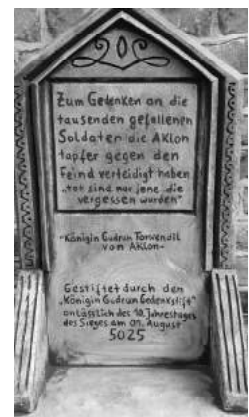 Zum Gedenken an die
tausenden gefallenen
Soldaten die Aklon
tapfer gegen den
Feind verteidigt haben
"tot sind nur jene die
vergessen wurden"
-Königin Gudrun Torwendil
von Aklon-
Gestiftet durch den
"Königin Gudrun Gedenkstift"
anlässlich des 10. Jahrestages
des Sieges am 01. August
5025